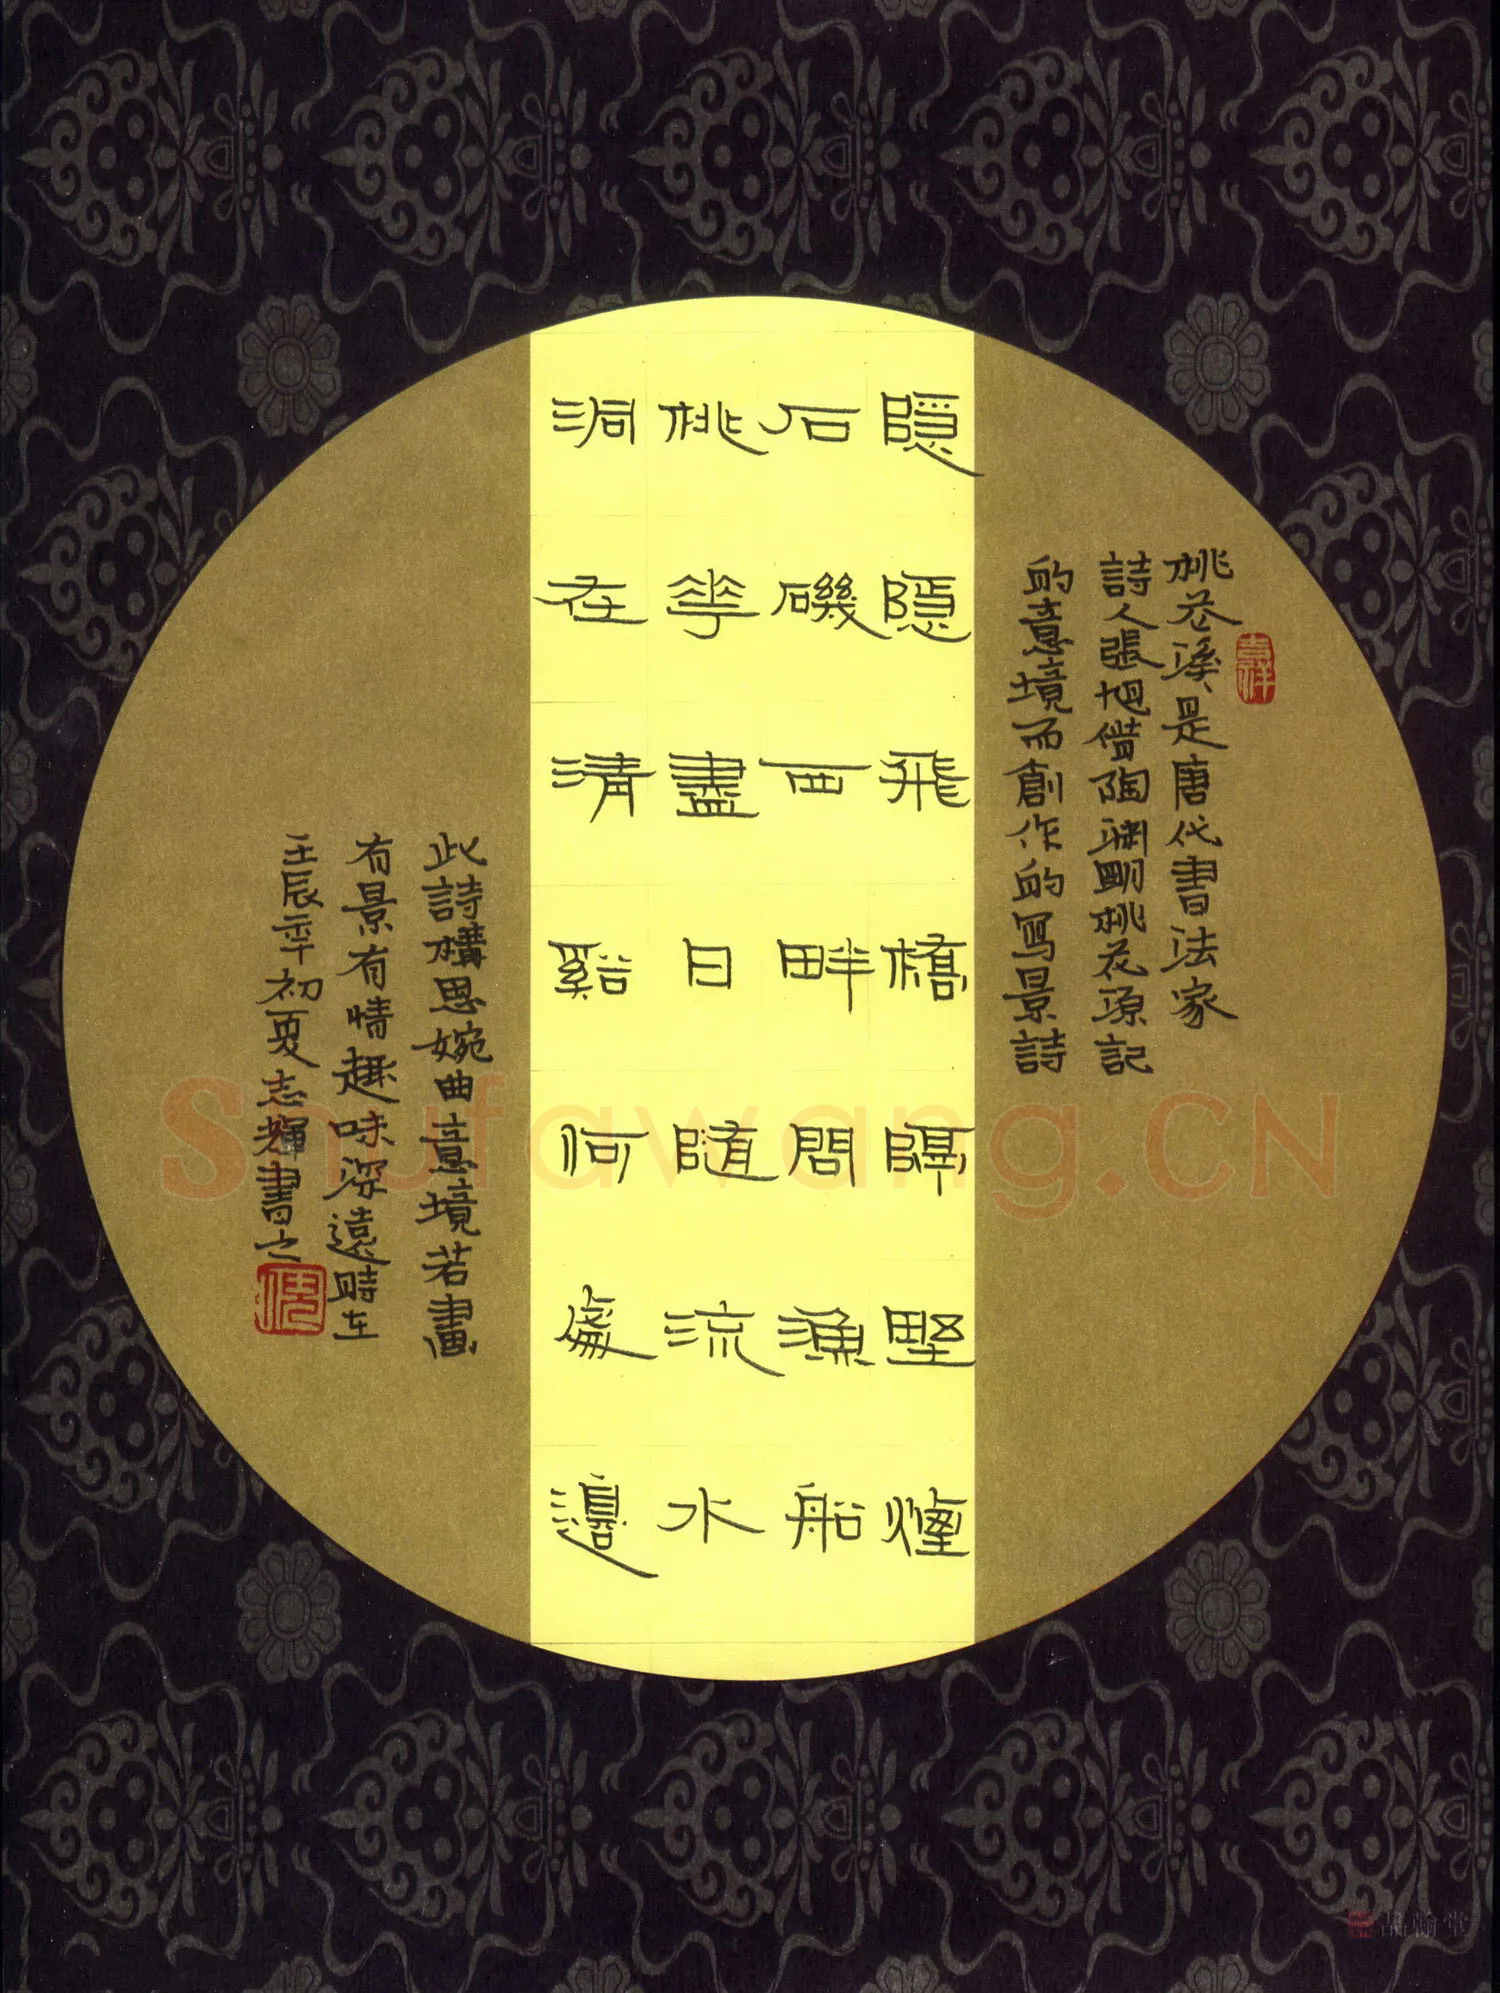 桃花溪是唐代書法家
詩人張旭借陶渊明桃花源記
的意境而創作的寫景詩
隱隱飛橋隔野煙
石磯西畔問漁船
桃花盡日隨流水
洞在清谿何處邊
此詩構思婉曲意境若畫
有景有情趣味深遠時在
壬辰年初夏志輝書之
Shufawang.CN
品翰堂